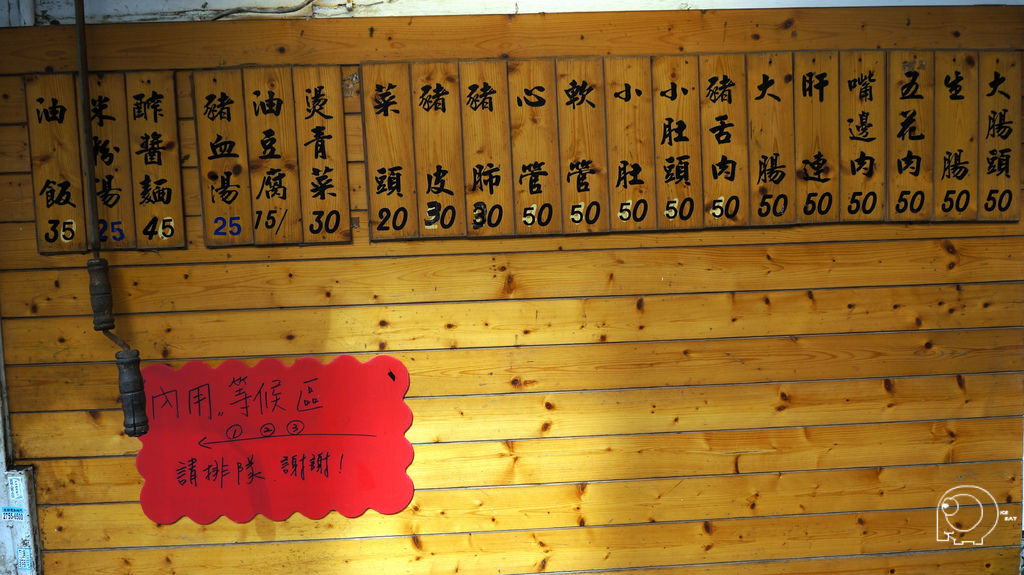 油飯 35
米粉湯 25
酢醬麵 45
豬血湯 25
油豆腐 15/
燙青菜 30
菜頭 20
豬皮 30
豬肺 30
心管 50
軟管 50
小肚 50
小肚頭 50
豬舌肉 50
大腸 50
肝連 50
嘴邊肉 50
五花肉 50
生腸 50
大腸頭 50
內用〃等候區
① ② ③
請排隊 謝謝！
2755-6500
ICE
EAT